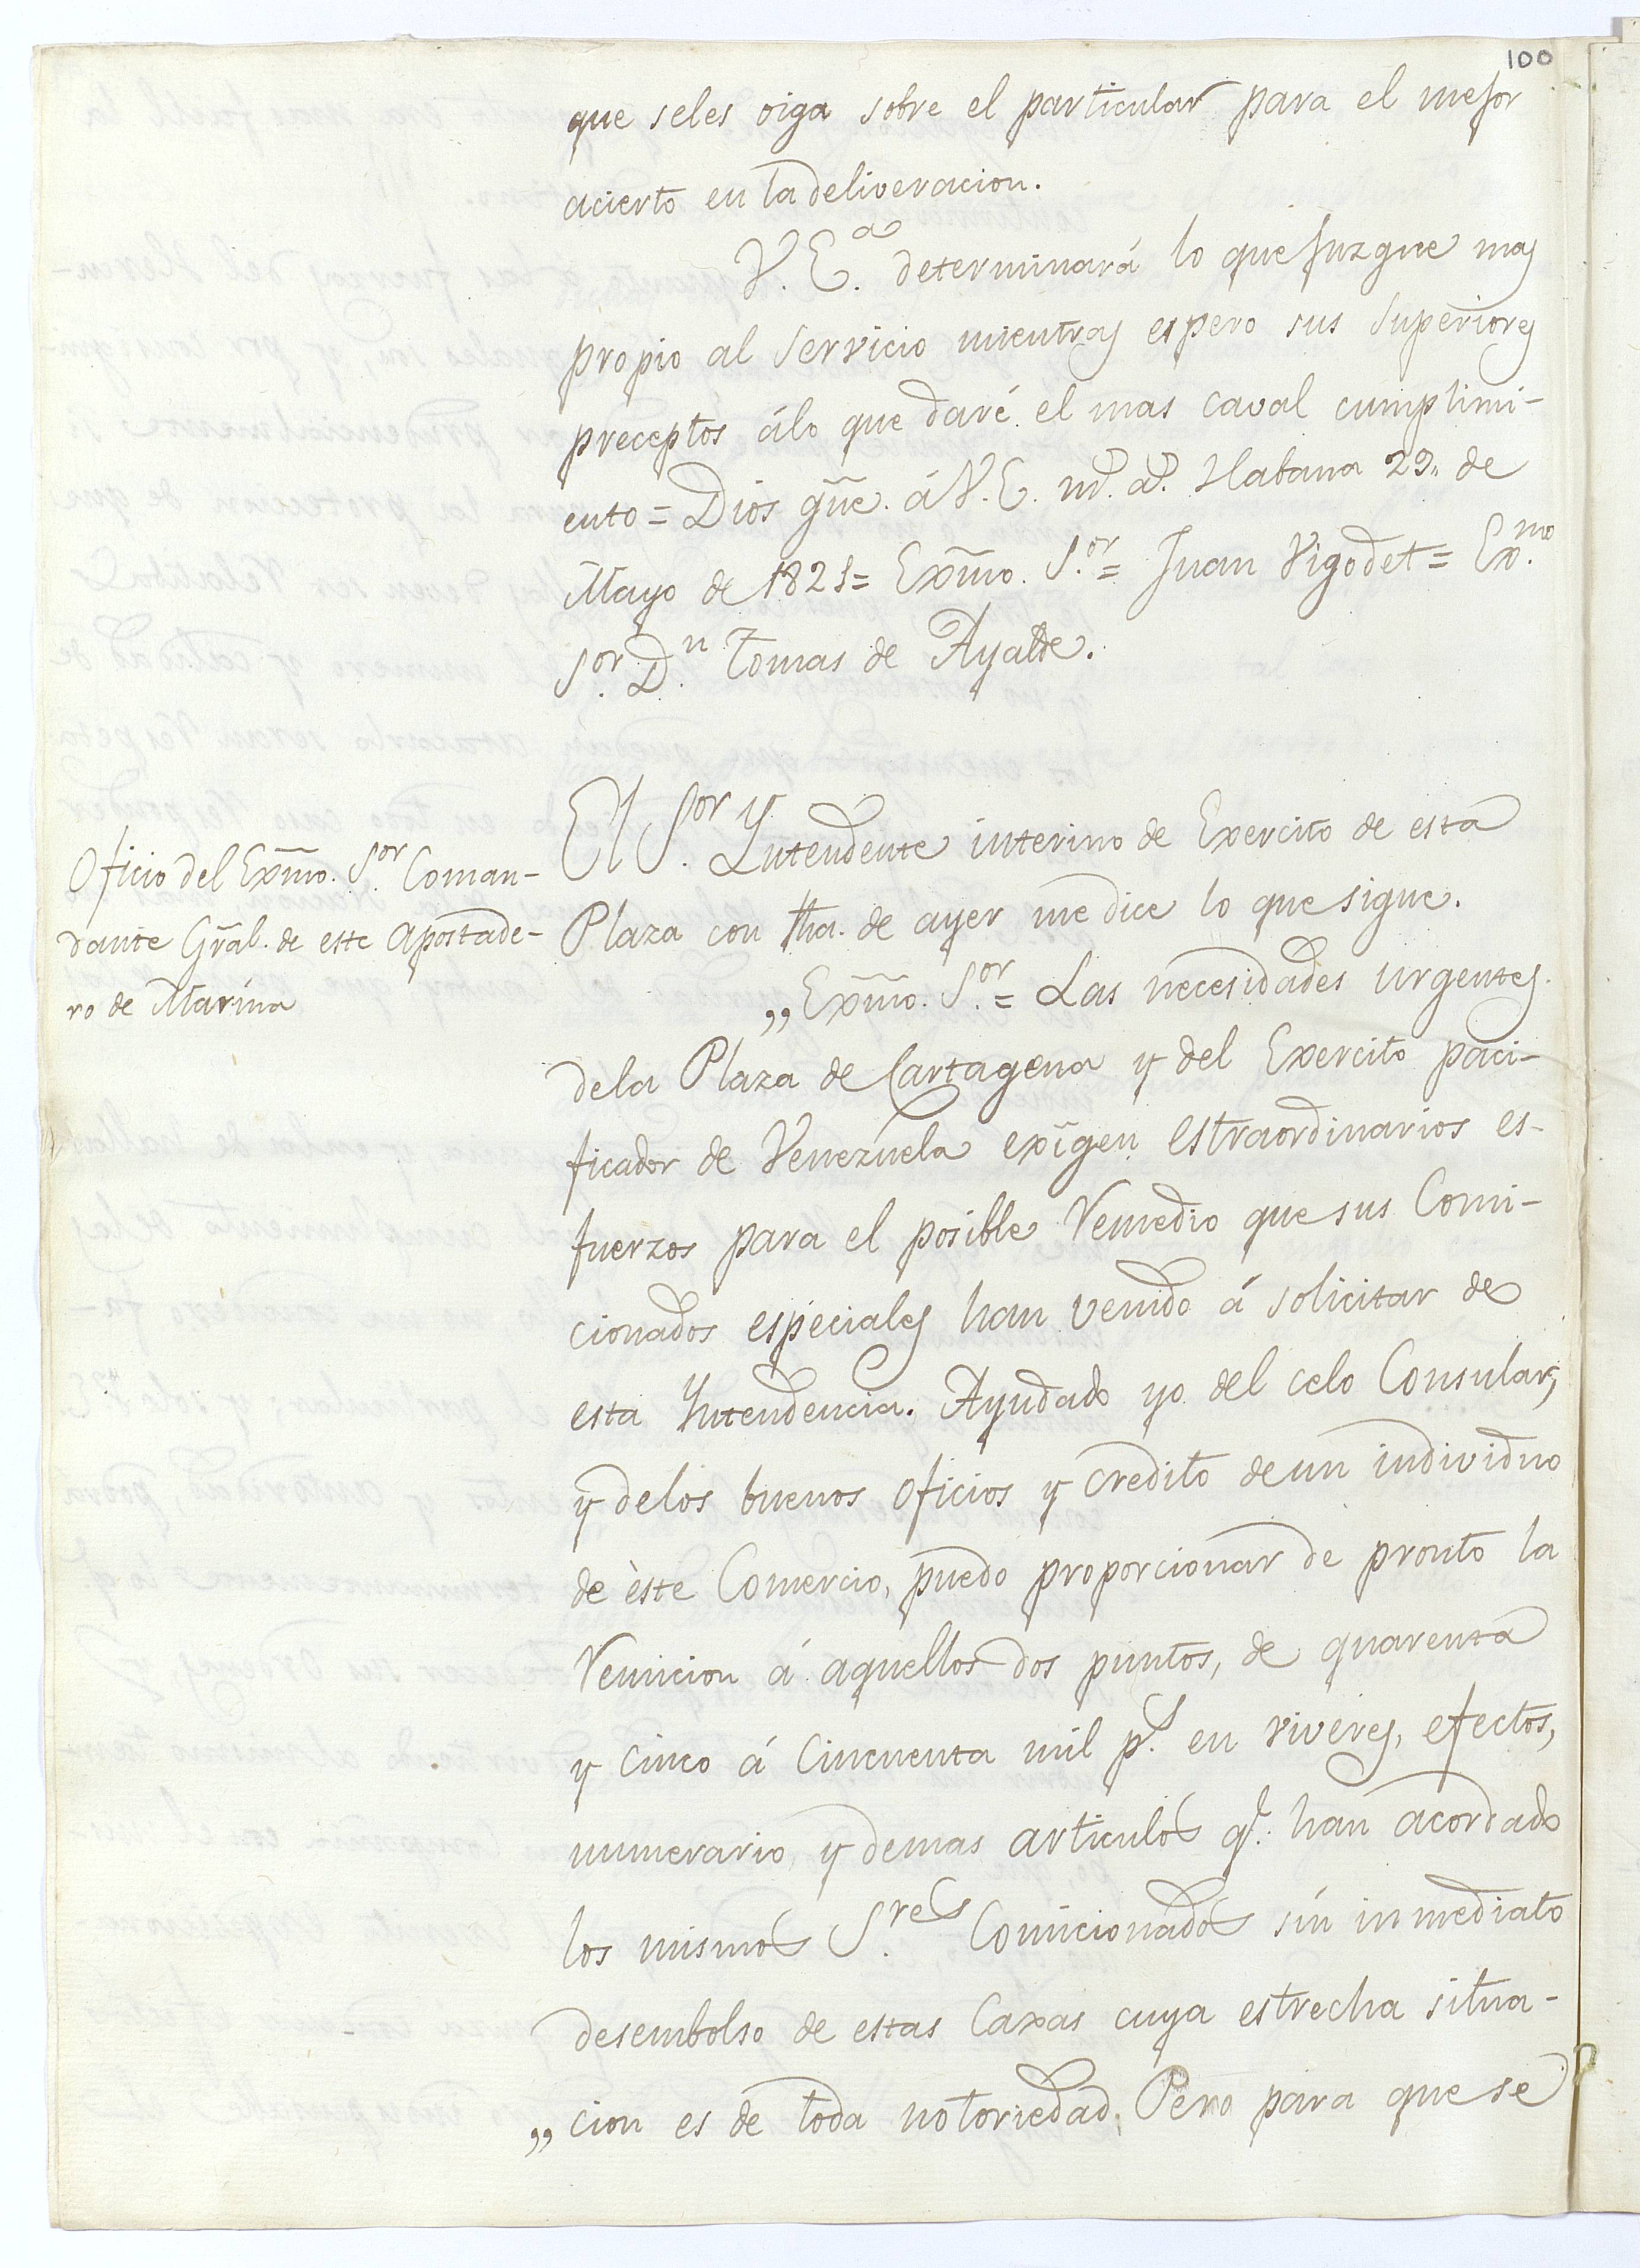 100
que seles oiga sobre el particular para el mejor
acierto en la deliveracion.
V. E.ª determinará lo que juzgue mas
propio al servicio mientras espero sus superiores
preceptos álo que daré el mas caval cumplimi-
ento = Dios gũe. á V. E. m.s a.s Habana 29,, de
Mayo de 1821= Exm̃o. S.or = Juan Vigodet = Ex.mo
S.or D.n Tomas de Ayalde.
Oficio del Exm̃o. S.or Coman-
dante Gr̃al. de este Apostade-
ro de Marina
El S.or Yntendente interino de Exercito de esta
Plaza con fha. de ayer me dice lo que sigue.
„Exm̃o. S.or = Las necesidades urgentes
dela Plaza de Cartagena y del Exercito paci-
ficador de Venezuela exigen estraordinarios es-
fuerzos para el posible remedio que sus Comi-
cionados especiales han venido á solicitar de
esta Yntendencia. Ayudado yo del celo Consular,
y delos buenos oficios y credito de un individuo
de èste Comercio, puedo proporcionar de pronto la
remicion á aquellos dos puntos, de quarenta
y cinco á cincuenta mil p.s en viveres, efectos,
numerario y demas articulos q.e han acordado
los mismos S.res Comicionados sin inmediato
desembolso de estas Caxas cuya estrecha situa-
„cion es de toda notoriedad. Pero para que se